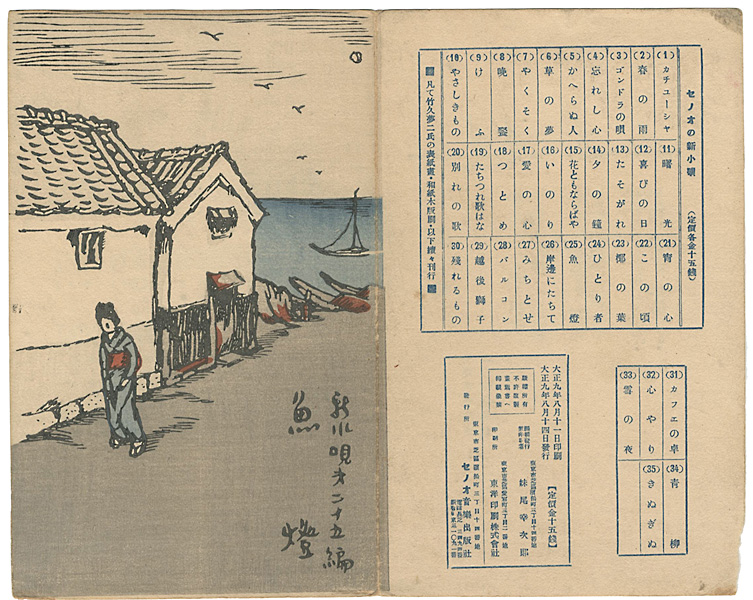 セノオの新小唄
(定價各金十五錢)
(1)カチユーシヤ
(2)春の雨
(3)ゴンドラの唄
(4)忘れし心
(5)かへらぬ人
(6)草の夢
(7)やくそく
(8)晩鐘
(9)けふ
(10)やさしきもの
(11)曙光
(12)喜びの日
(13)たそがれ
(14)夕の鐘
(15)花ともならばや
(16)いのり
(17)愛の心
(18)つとめ
(19)たちつれ歌はな
(20)別れの歌
(21)宵の心
(22)この頃
(23)椰の葉
(24)ひとり者
(25)魚燈
(26)岸邊にたちて
(27)みちとせ
(28)バルコン
(29)越後獅子
(30)殘れるもの
■凡て竹久夢二氏の表紙畫・和紙木版刷・以下續々刊行■
(31)カフエの卓
(32)心やり
(33)雪の夜
(34)靑柳
(35)きぬぎぬ
大正九年八月十一日印刷
大正九年八月十四日發行
【定價金十五錢】
妹尾幸次郎
印刷所
東洋印刷株式會社
發行所
セノオ音樂出版社
新小唄才二十五編
魚燈